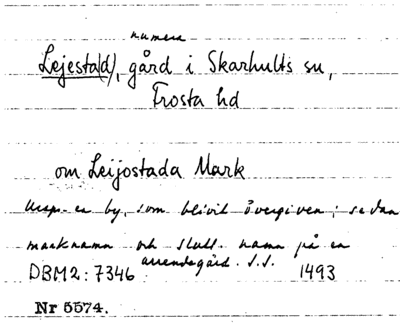 numera
Lejesta(d), gård i Skarhults sn,
Frosta hd
om Leijostada Mark
Ursp. en by, som blivit övergiven; sedan
marknamn och slutl. namn på en
arrendegård. S.S.
DBM2: 7346 1493
Nr 5574.